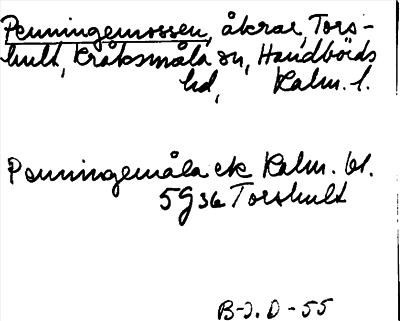 Penningemossen, åkrar, Tors-
hult, Kråksmåla sn, Handbörds
hd, Kalm. l.
Penningemåla ek Kalm. bl.
5G36 Torshult
B-J. D-55